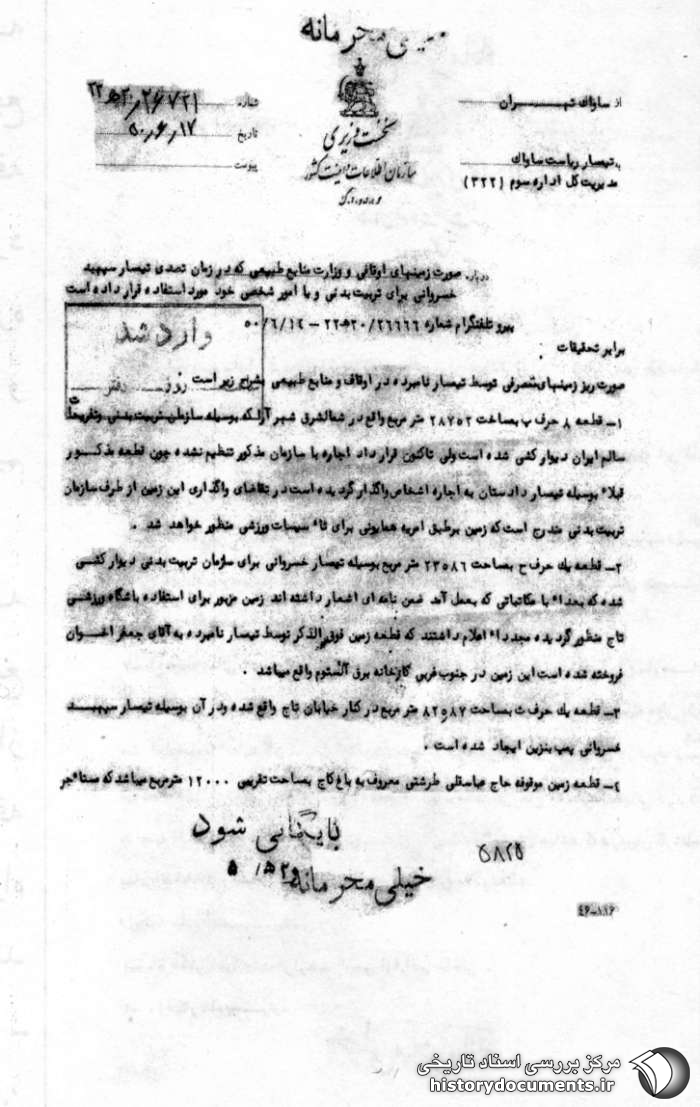 خیلی محرمانه
از ساواك تهـــــران
شماره ۲۶۷۲۱/۲۰ه۲۲
نخست وزیری
تاریخ ۵۰/۶/۱۷
سازمان اطلاعات و امنیت کشور
پیوست
به تیمسار ریاست ساواك
مدیریت کل اداره سوم (۳۲۲)
درباره صورت زمینهای اوقافی و وزارت منابع طبیعی که در زمان تصدی تیمسار سپهبد
خسروانی برای تربیت بدنی و یا امور شخصی خود مورد استفاده قرار داده است
پیرو تلفنگرام شماره ۲۶۶۶۶/۲۰ه‍۲۲ – ۵۰/۶/۱۴
وارد شد
روز
دفتر
برابر تحقیقات
صورت ریز زمینهای متصرفی توسط تیمسار نامبرده در اوقاف و منابع طبیعی بشرح زیر است
۱– قطعه ۸ حرف ب بمساحت ۲۸۷۵۲ متر مربع واقع در شمالشرق شهر آرا که بوسیله سازمان تربیت بدنی وتفریحات
سالم ایران دیوار کشی شده است ولی تاکنون قرار داد اجاره با سازمان مذکور تنظیم نشده چون قطعه مذکـــور
قبلا" بوسیله تیمسار دادستان به اجاره اشخاص واگذار گردیده است در تقاضای واگذاری این زمین از طرف سازمان
تربیت بدنی مندرج است که زمین برطبق امریه همایونی برای تا" سیسات ورزشی منظور خواهد شد .
۲– قطعه یك حرف ح بمساحت ۲۳۵۸۶ متر مربع بوسیله تیمسار خسروانی برای سازمان تربیت بدنی دیوار کشی
شده که بعدا" با مکاتباتی که بعمل آمد ضمن نامه ای اشعار داشته اند زمین مزبور برای استفاده باشگاه ورزشـی
تاج منظور گردیده مجددا" اعلام داشتند که قطعه زمین فوق الذکر توسط تیمسار نامبرده به آقای جعفر اخــوان
فروخته شده است این زمین در جنوب غربی کارخانه برق آلستوم واقع میباشد .
۳– قطعه یك حرف ث بمساحت ۸۲۵۸۷ متر مربع در کنار خیابان تاج واقع شده ودر آن بوسیله تیمسار سپهبــد
خسروانی پمپ بنزین ایجاد شده است .
۴– قطعه زمین موقوفه حاج عباسقلی طرشتی معروف به باغ کاج بمساحت تقریبی ۱۲۰۰۰ متر مربع میباشد که مستا"جر
بایگانی شود
۵۸۲۵
خیلی محرمانه
۴۶-۱۱۶
مرکز بررسی اسناد تاریخی
historydocuments.ir